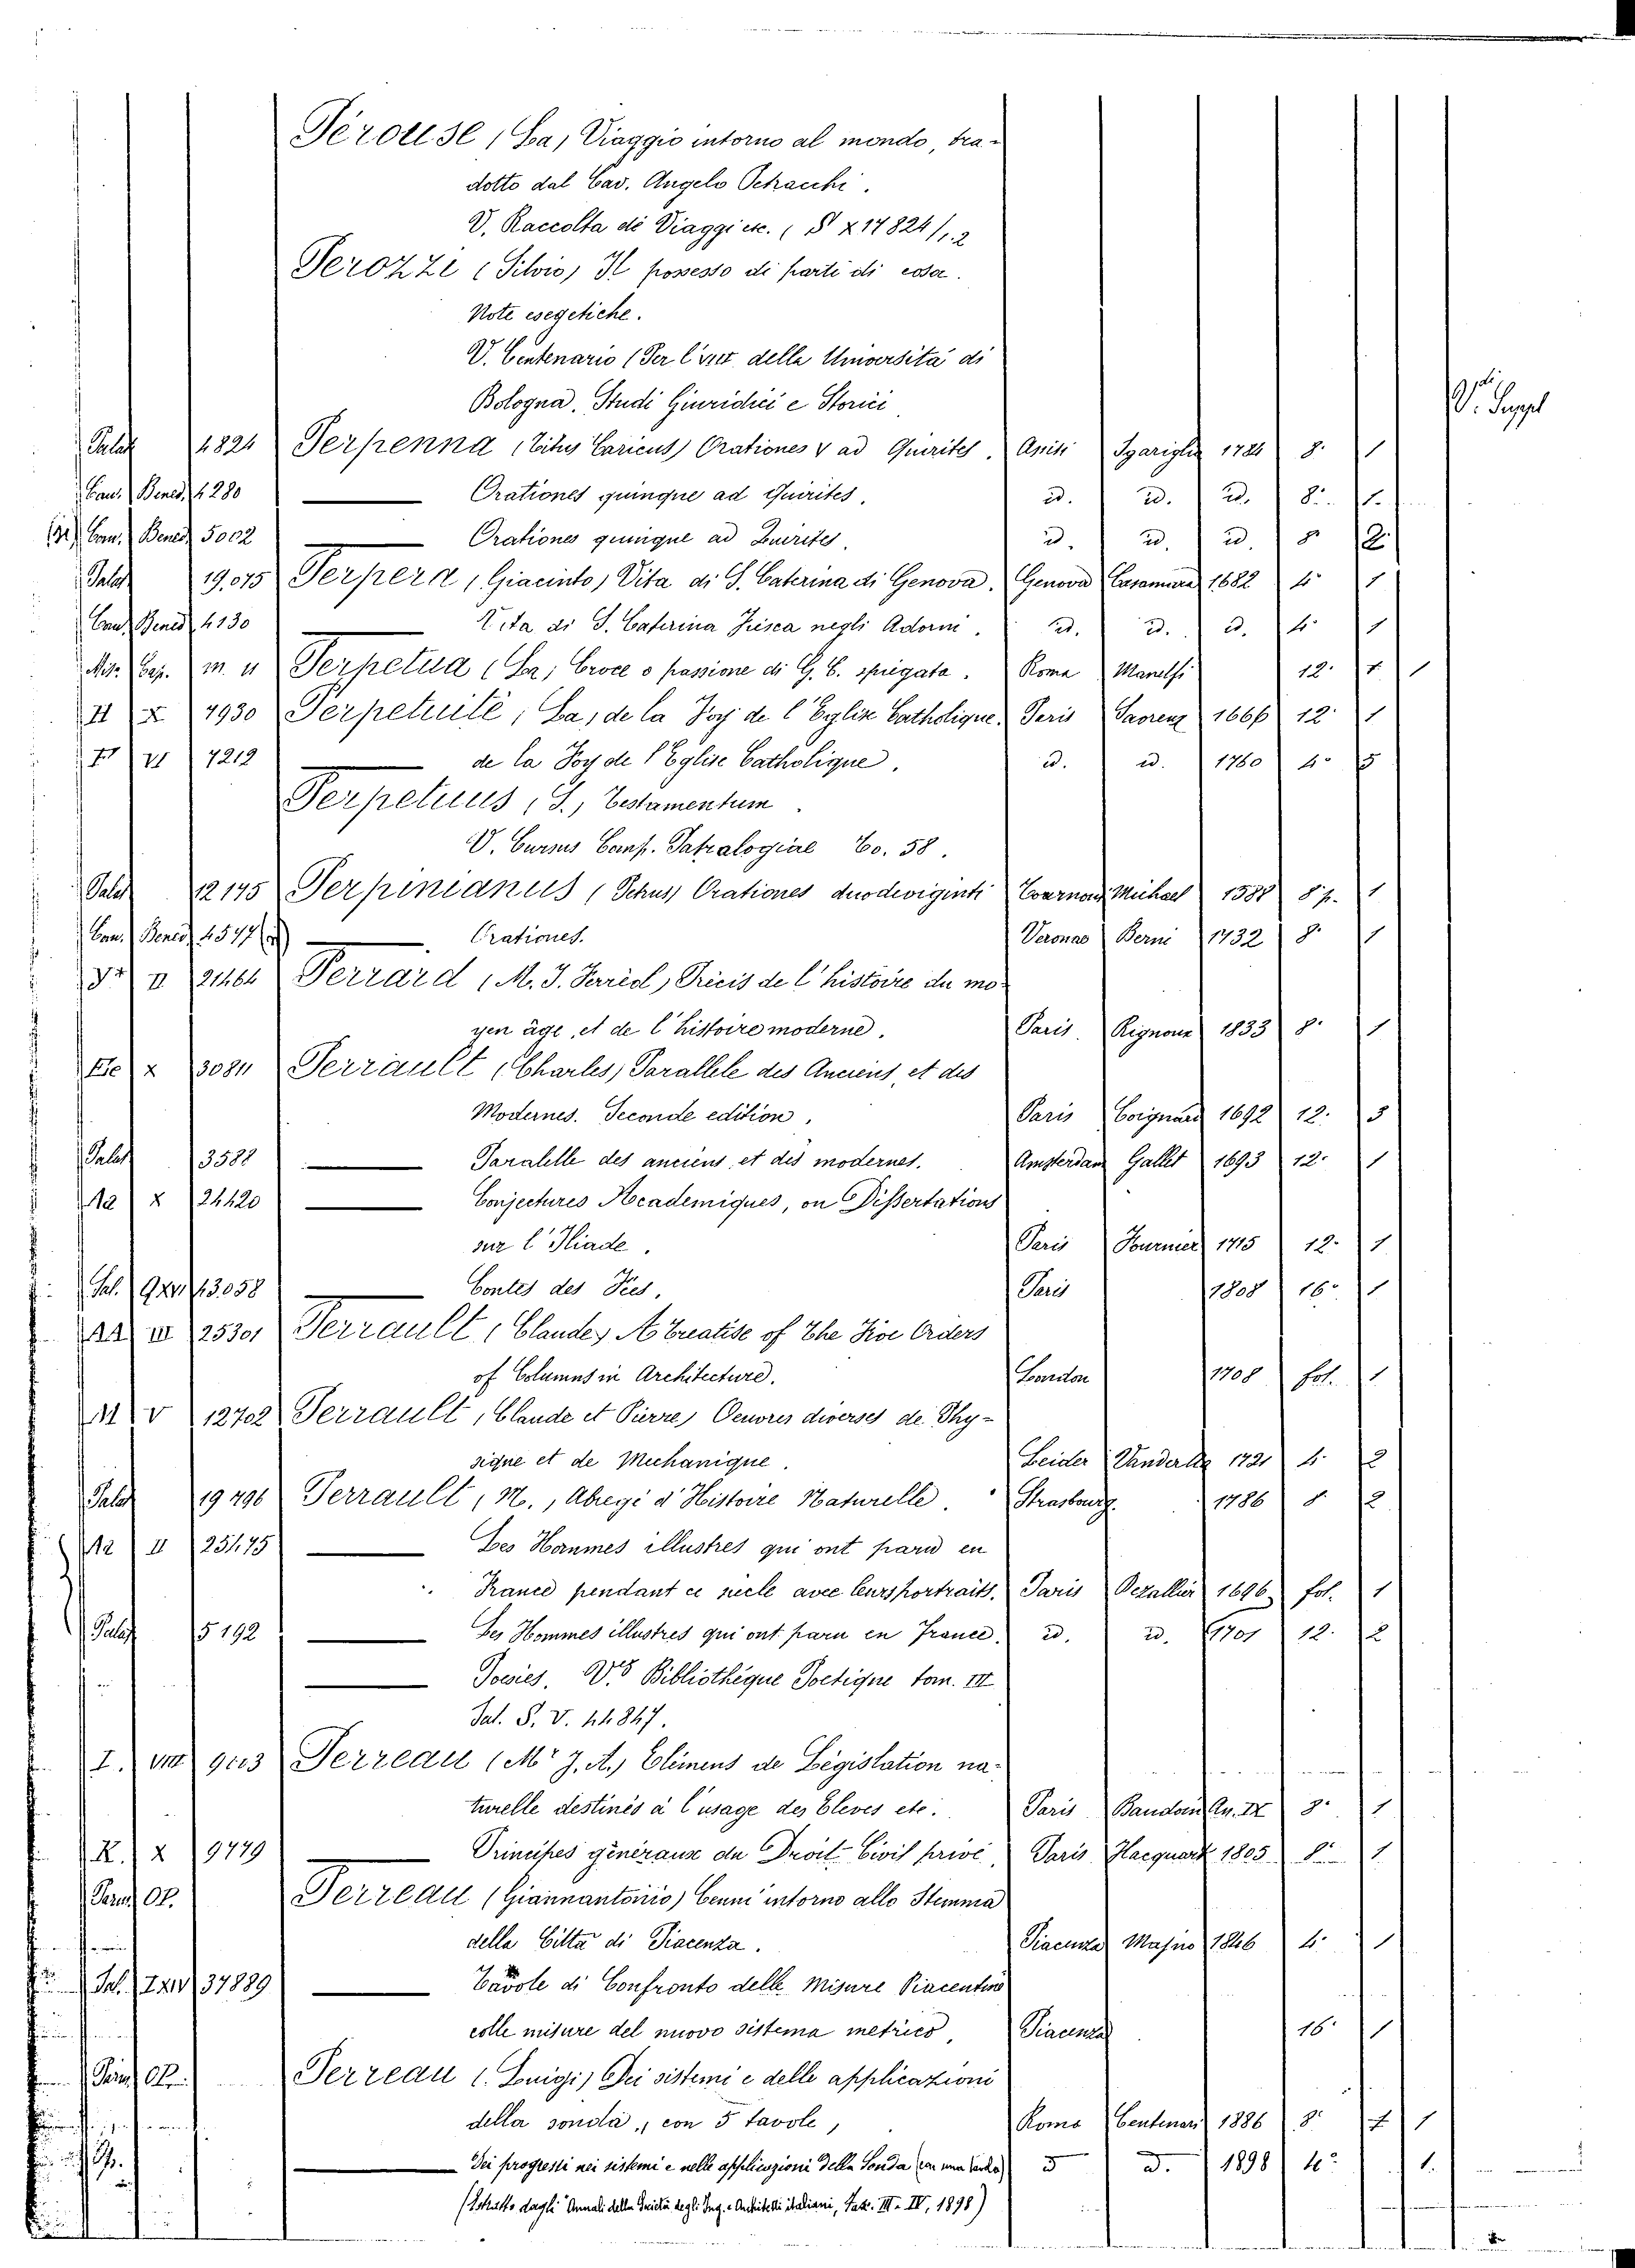 Pérouse (La) Viaggio intorno al mondo, tra-
dotto dal Cav. Angelo
V. Raccolta di Viaggi etc. ( § X 17824/1,2
Perozzi (Silvio) Il possesso di parti di cosa.
Note esegetiche.
V. Centenario (Per l'VIII della Università di
Bologna. Studi Giuridici e Storici V. Suppl
Palat 4824 Perpenna (Titus Caricus) Orationes V ad Quirites. Anisi Sgariglia 1784 8. 1
Can. Bened. 4280 Orationes quinque ad Quirites. id. id. id. 8. 1.
Can. Bened. 5002 Orationes quinque ad Quirites. id. id. id. 8 2.
Palat 19,075 Perpera (Giacinto) Vita di S. Caterina di Genova. Genova Casamara 1682 4° 1
Can. Bened. 4130 Vita di S. Caterina Fiesca negli Adorni. id. id. id. 4° 1
Mis. Cap. Perpetua (La) Croce o passione di G. C. spiegata. Roma Manelfi 12. 1 1
II X 4930 Perpetuité (La) de la Foy de l'Eglise Catholique. Paris Savreux 1666 12 1
VI 7212 de la Foy de l'Eglise Catholique. id. id. 1760 4° 5
Perpetuus (S.) Testamentum.
V. Cursus Comp. Patralogiae To. 58.
Palat 12175 Perpinianus (Petrus) Orationes duodeviginti Michael 1588 8 p. 1
Can. Bened. 4577 Orationes. Veronae Berni 1732 8° 1
II 21464 Perrard (M. J. Ferriol) Précis de l'histoire du mo-
yen âge, et de l'histoire moderne. Paris. Rignoux 1833 8° 1
X 3084 Perrault (Charles) Parallele des Anciens, et des
Modernes. Seconde edition. Paris Coignard 1692 12. 3
Palat 3588 Paralelle des anciens et des modernes. Amsterdam Gallet 1693 12. 1
X 24420 Conjectures Academiques, ou Dissertations
sur l'Iliade. Paris Fournier 1715 12. 1
Sal. 43.058 Contes des Fées. Paris 1808 16° 1
III 25301 Perrault (Claude) A Treatise of The Five Orders
of Columns in Architecture. London 1708 fol. 1
V 12702 Perrault (Claude et Pierre) Oeuvres diverses de Phy-
sique et de Mechanique. Leider Vander Aa 1721 4. 2
Palat 19796 Perrault (M.) Abregé d'Histoire Naturelle. Strasbourg. 1786 8 2
II 25475 Les Hommes illustres qui ont paru en
France pendant ce siecle avec leurs portraits. Paris Dezallier 1696 fol. 1
Palat 5192 Les Hommes illustres qui ont paru en France. id. id. 1701 12. 2
Poesies. V. Bibliothéque Poetique tom. III
Sal. S. V. 44847.
I. VIII 9113 Perreau (Mr J. A.) Elémens de Législation na-
turelle destinés à l'usage des Eleves etc. Paris Baudoin An. IX 8° 1
R. X 9779 Principes généraux du Droit Civil privé Paris Hacquart 1805 8° 1
Parm. Op. Perreau (Giannantonio) Cenni intorno allo Stemma
della Città di Piacenza. Piacenza Majno 1846 4. 1
Sal. 37889 Tavole di Confronto delle Misure Piacentine
colle misure del nuovo sistema metrico, Piacenza 16° 1
Parm. Op. Perreau (Luigi) Dei sistemi e delle applicazioni
della sonda, con 5 tavole, Roma Centenari 1886 8° 1 1
Dei progressi nei sistemi e nelle applicazioni della Sonda (con una tavola) id. 1898 4° 1.
(Estratto dagli "Annali della Società degli Ing. e Architetti italiani, Fasc. III - IV, 1898)